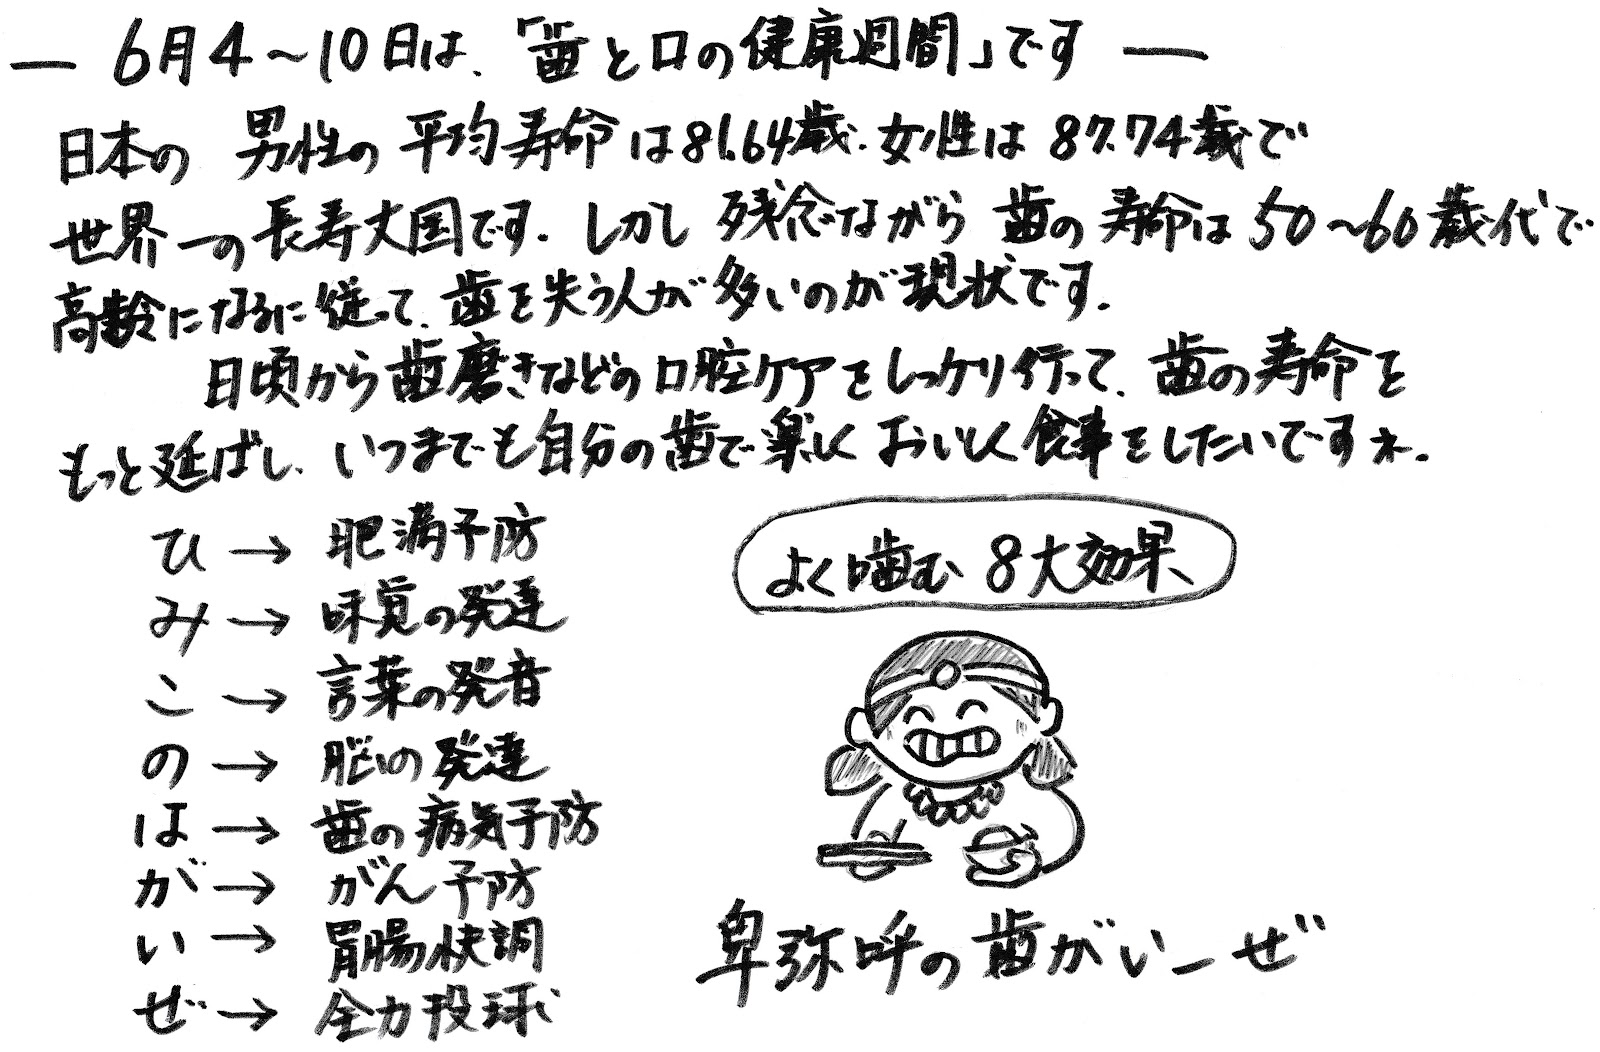 ― 6月4～10日は、「歯と口の健康週間」です ―
日本の 男性の平均寿命は81.64歳、女性は87.74歳で
世界一の長寿大国です。しかし残念ながら歯の寿命は50～60歳代で
高齢になるに従って、歯を失う人が多いのが現状です。
日頃から歯磨きなどの口腔ケアをしっかり行って、歯の寿命を
もっと延ばし、いつまでも自分の歯で楽しくおいしく食事をしたいですネ。
よく噛む8大効果
ひ→肥満予防
み→味覚の発達
こ→言葉の発音
の→脳の発達
は→歯の病気予防
が→がん予防
い→胃腸快調
ぜ→全力投球
卑弥呼の歯がいーぜ